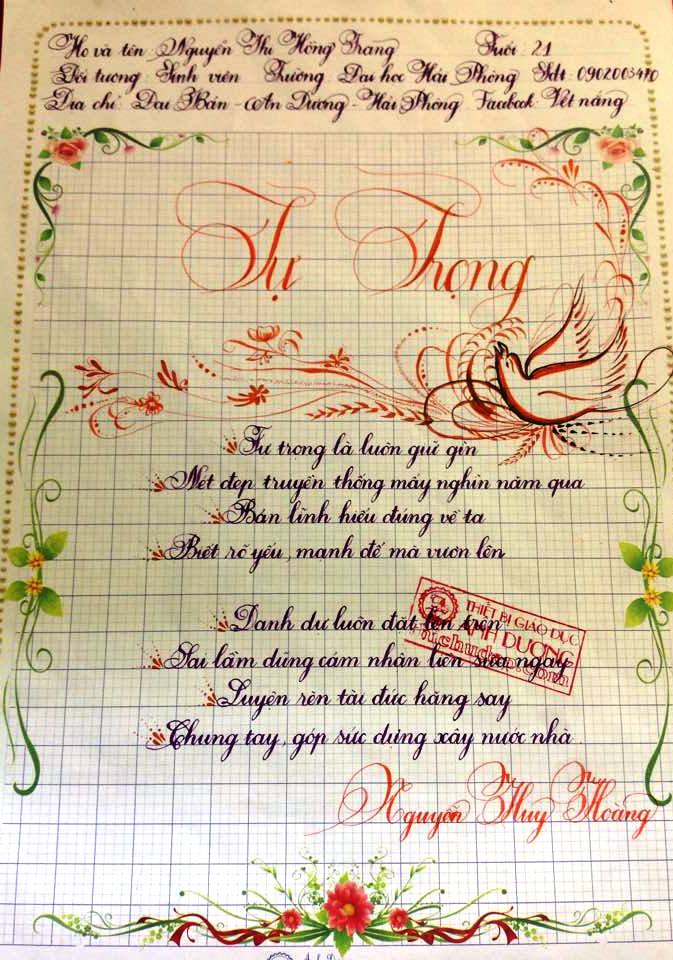 Họ và tên: Nguyễn Thị Hồng Trang Tuổi: 21
Đối tượng: Sinh viên Trường Đại học Hải Phòng Sđt: 0902003470
Địa chỉ: Đau Bản - An Dương - Hải Phòng Facebook: Vết nắng
Tự Trọng
Tự trọng là luôn giữ gìn
Nét đẹp truyền thống mấy nghìn năm qua
Bản lĩnh hiểu đúng về ta
Biết rõ yếu, mạnh để mà vươn lên
Danh dự luôn đặt lên trên
Sai lầm dũng cảm nhận liền sửa ngay
Luyện rèn tài đức hăng say
Chung tay, góp sức dựng xây nước nhà
THIẾT BỊ GIÁO DỤC
ÁNH DƯƠNG
Nguyễn Huy Hoàng